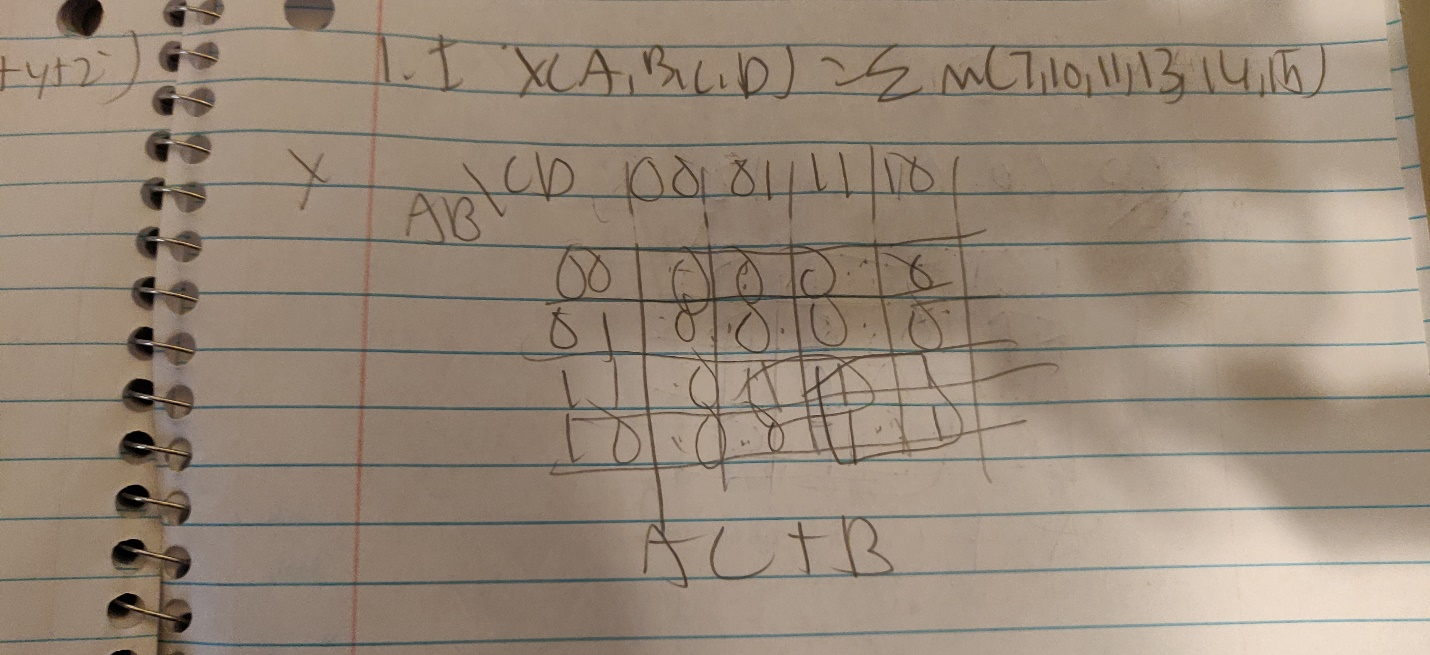 +y+z)
1.I X(A,B,C,D) = Σ m(7,10,11,13,14,15)
X AB\CD 00 01 11 10
00 0 0 0 0
01 0 0 0 0
11 0 1 1 1
10 0 0 1 1
AC+B